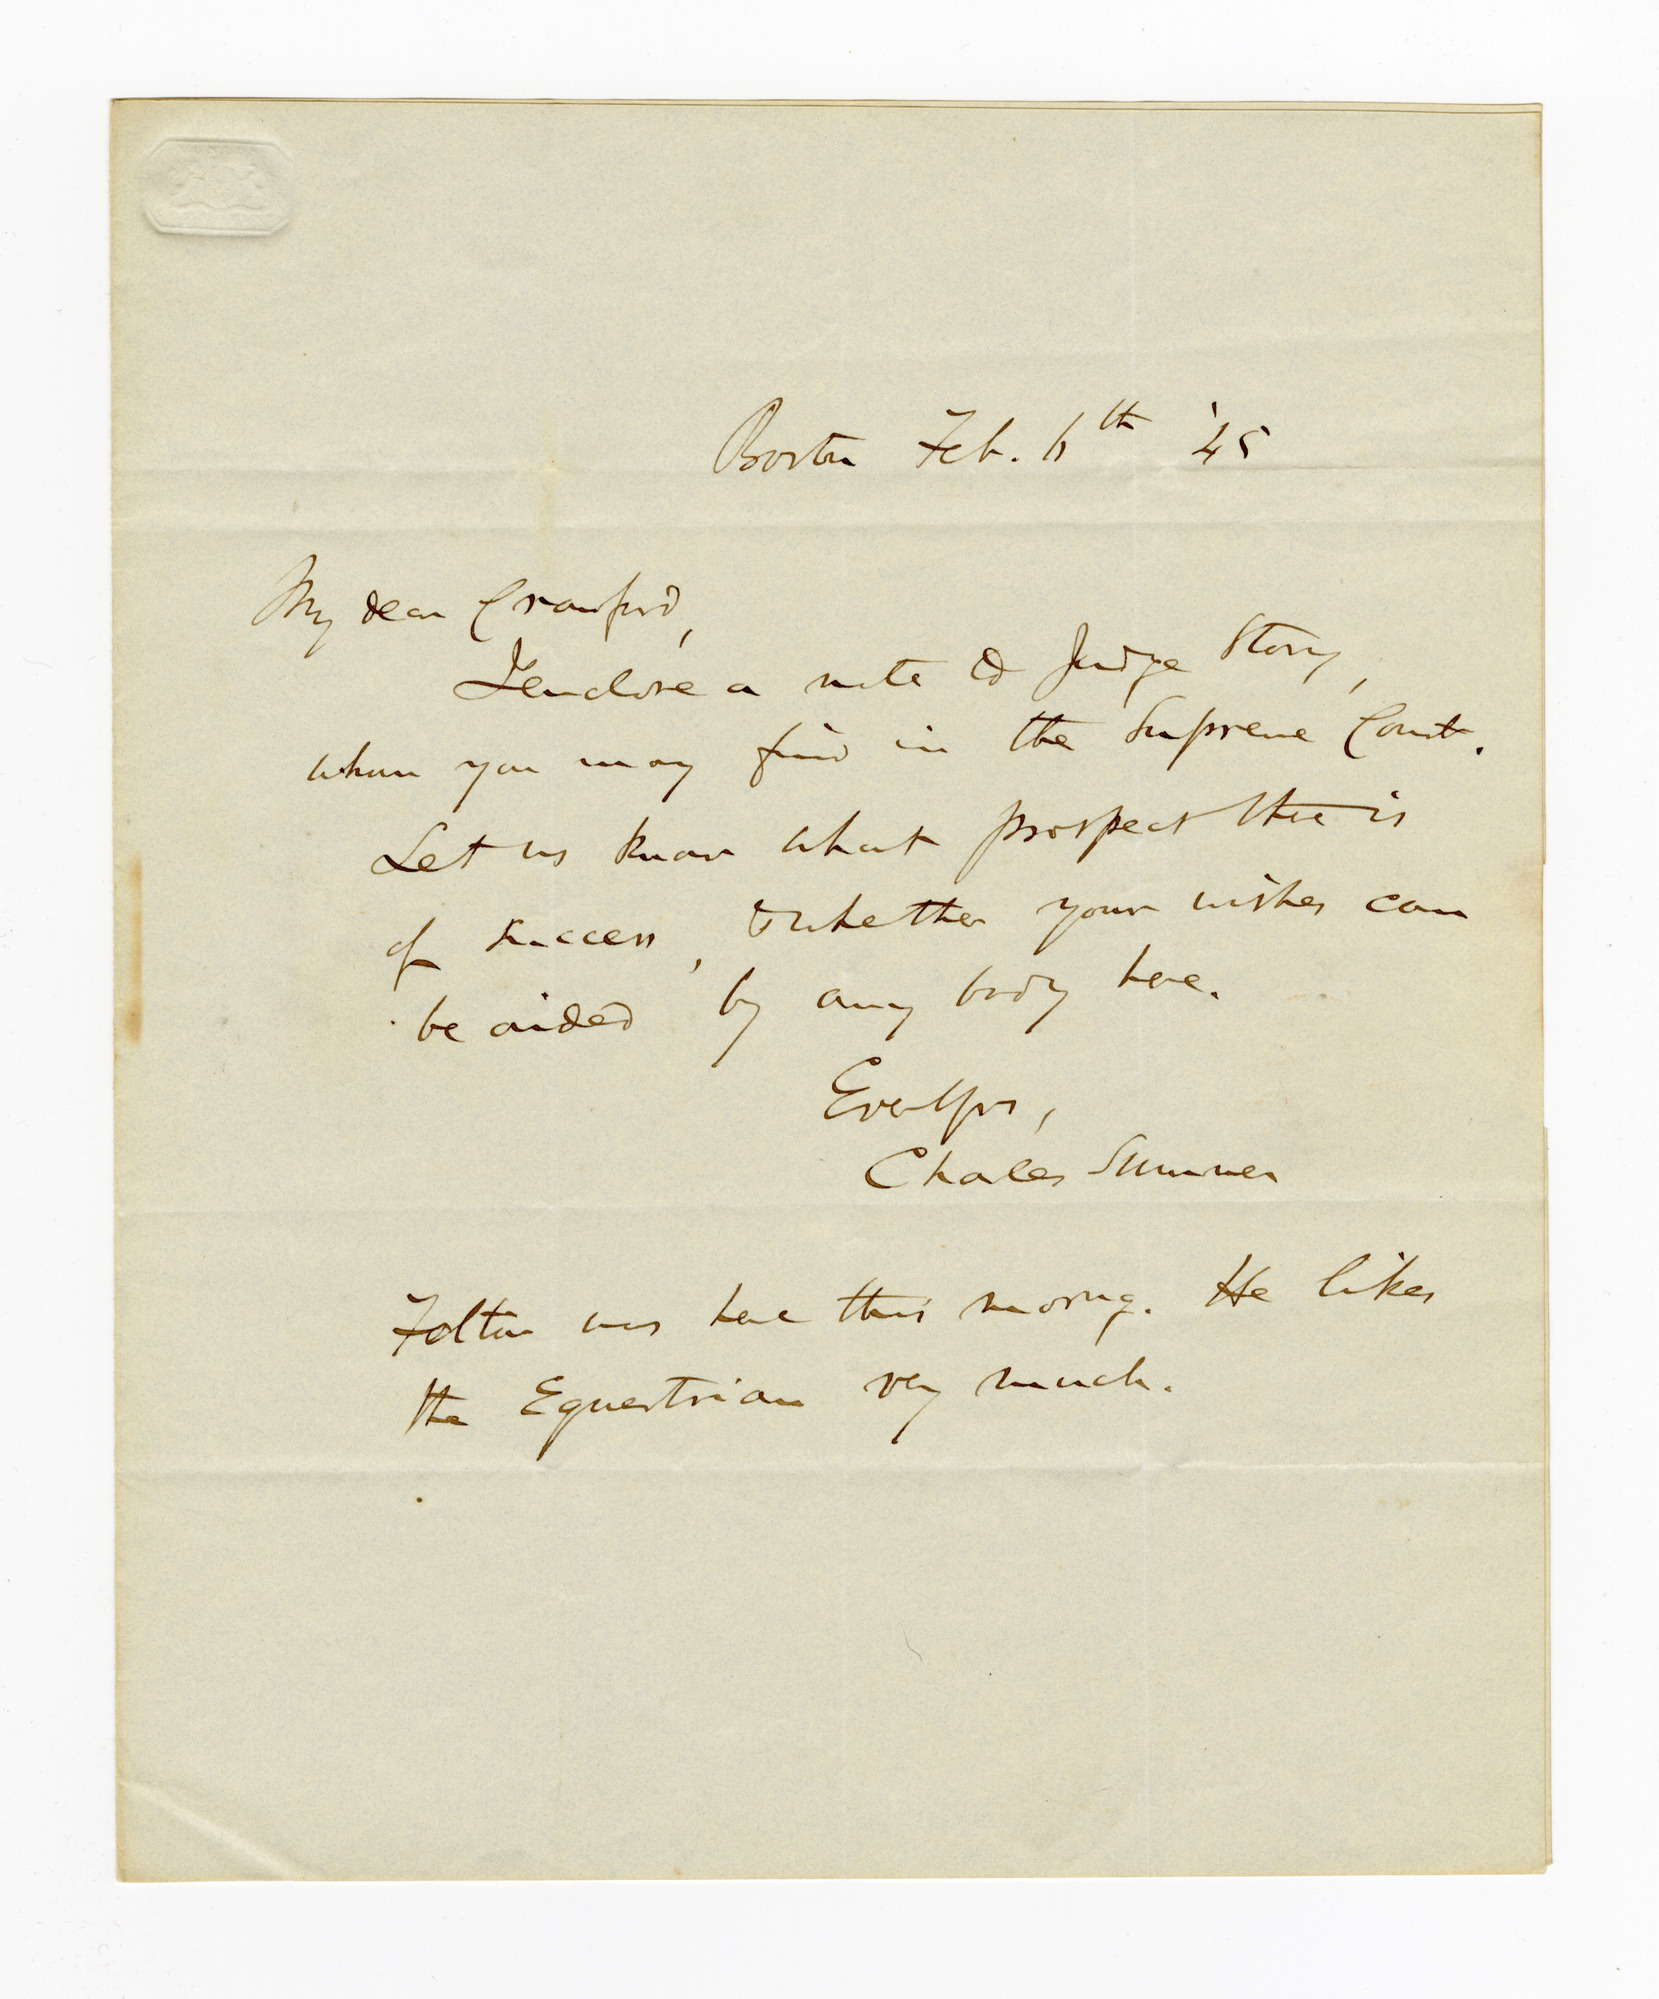 Boston Feb. 6th '45
My dear Crawford,
I enclose a note to Judge Story,
whom you may find in the Supreme Court.
Let us know what prospect there is
of success, & whether your wishes can
be aided by any body here.
Ever Yrs,
Charles Sumner
Felton was here this morng. He likes
the Equestrian very much.